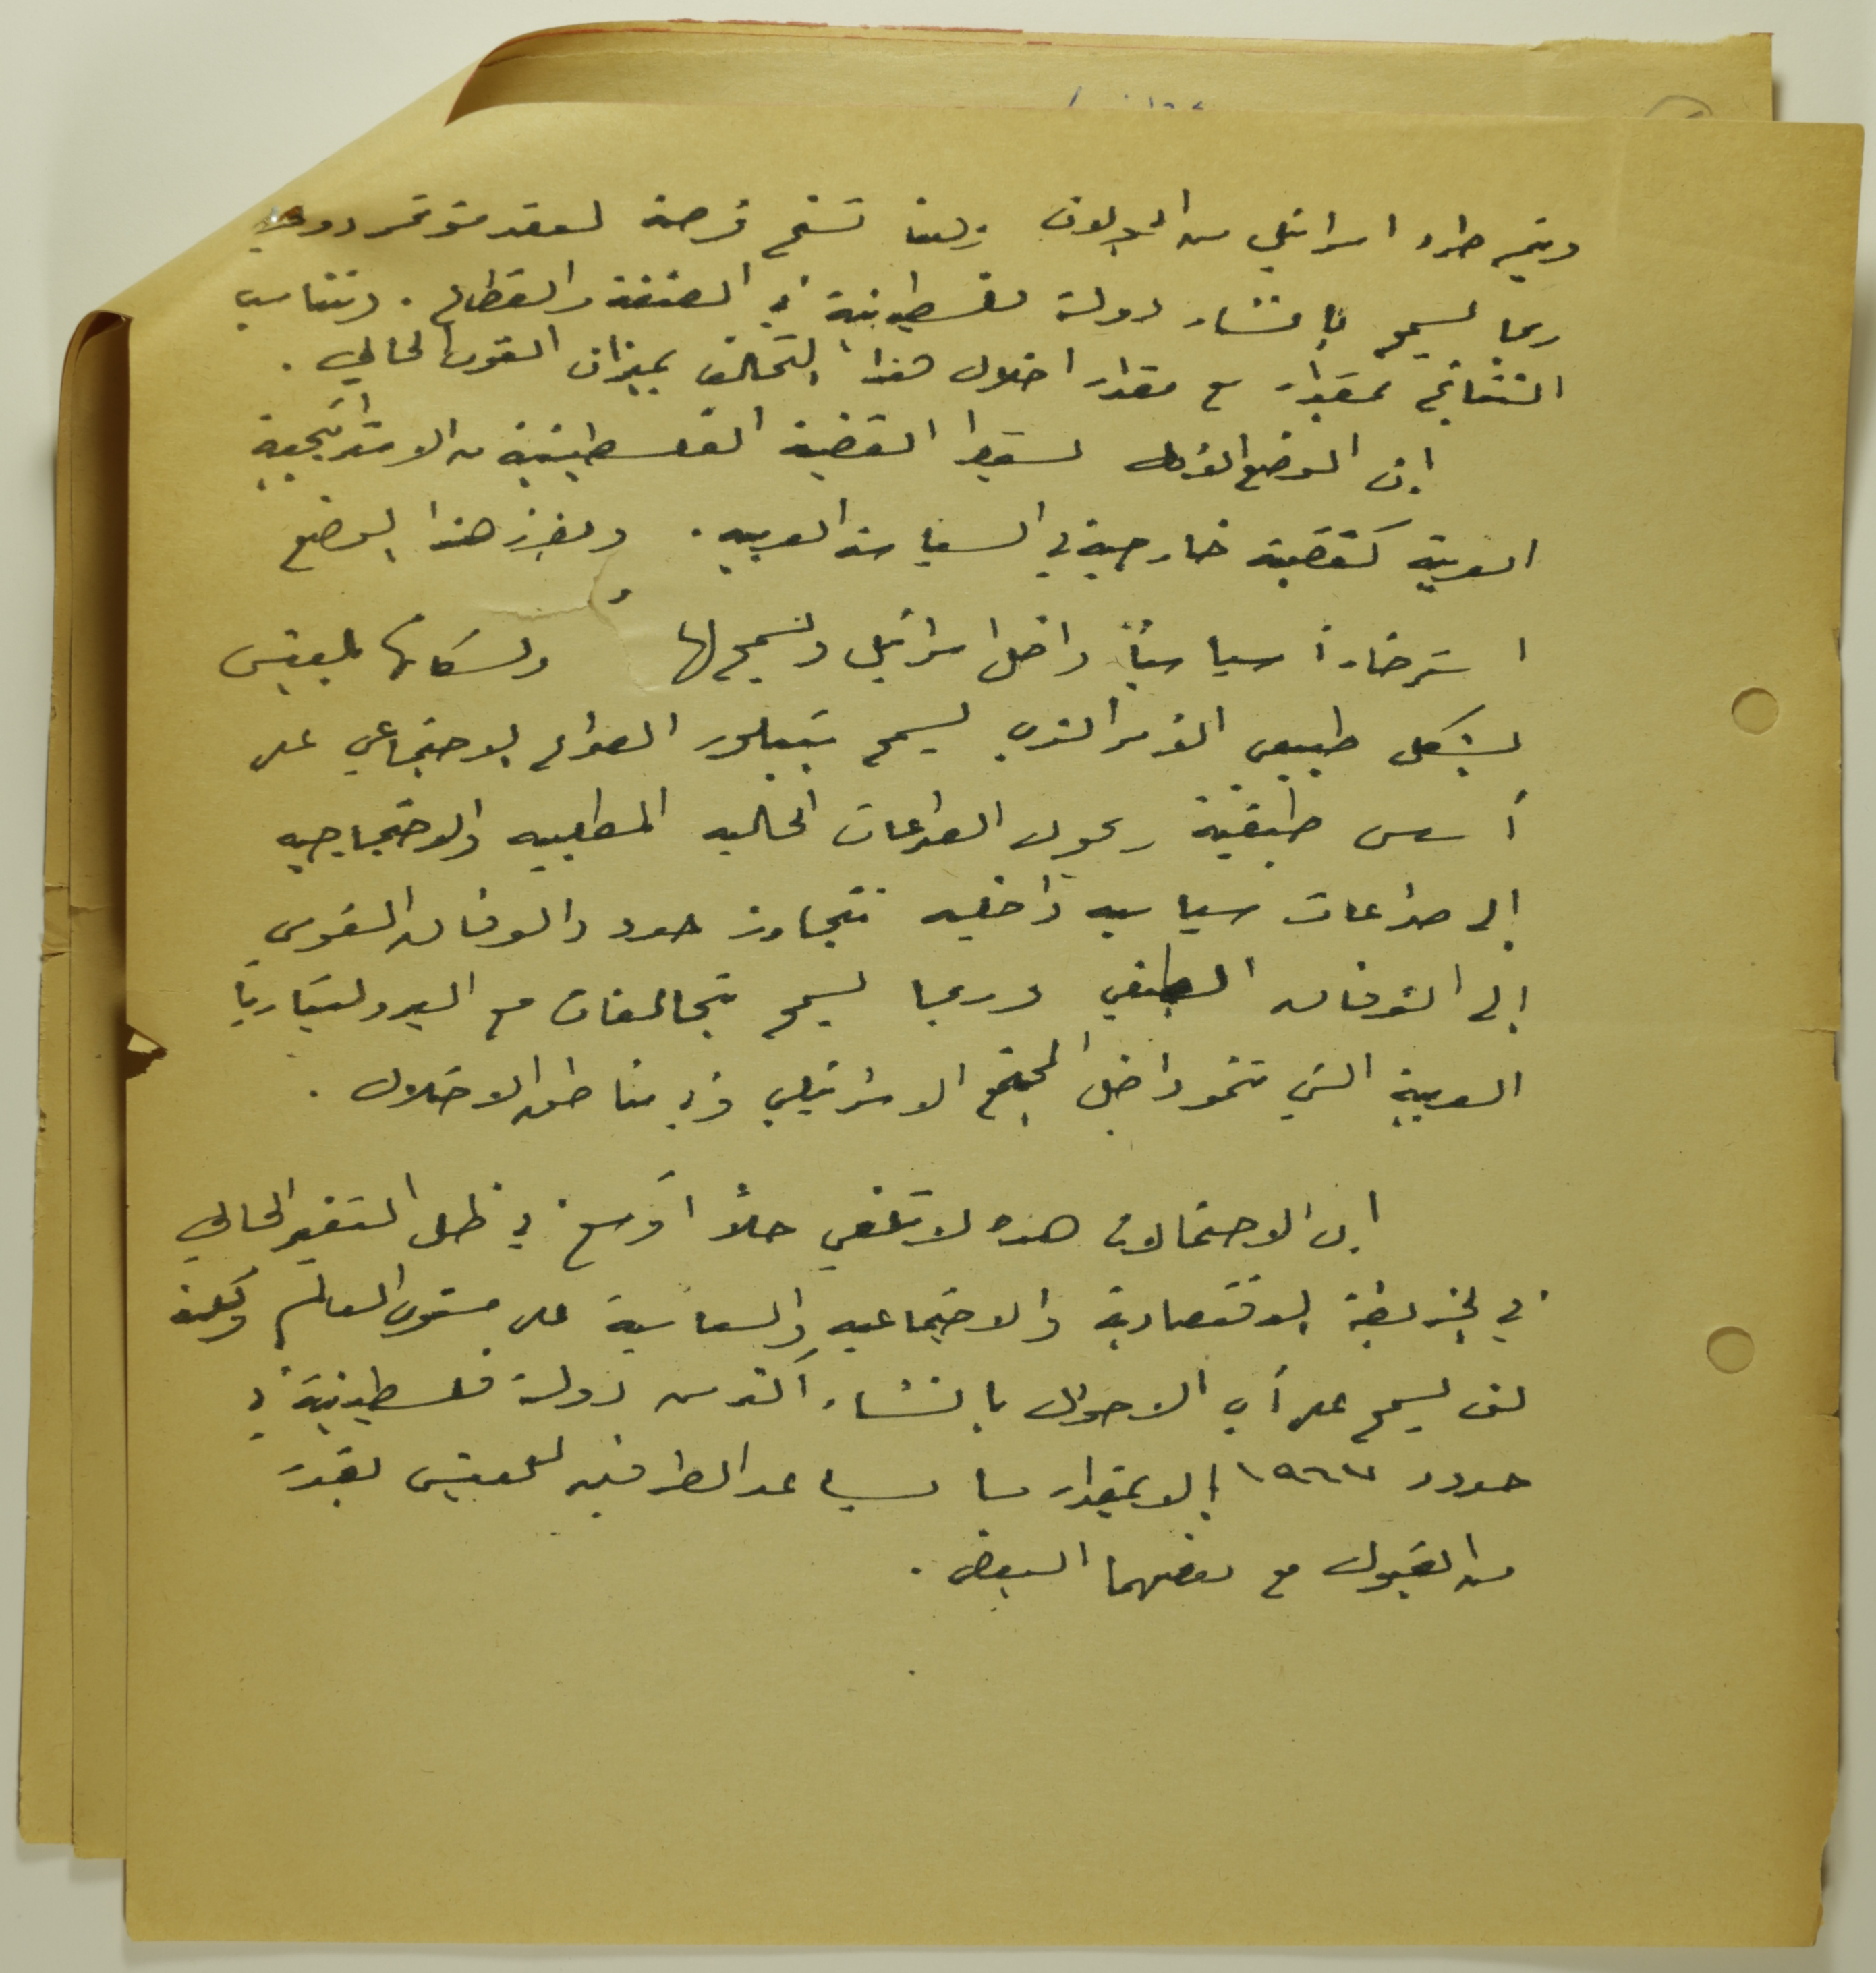 ويتم طرد اسرائيل من الجولان وهنا تسنح فرصة لعقد مؤتمر دولي
ربما يسمح بإنشاء دولة فلسطينية في الضفة والقطاع. وتتناسب
النتائج بمقدار مع مقدار اخلال هذا التحالف بميزان القوى الحالي.
إن الوضع الأول يسقط القضية الفلسطينية من الاستراتيجية
العربية كقضية خارجية في السياسة العربية. ويفرز هذا الوضع
استرخاءً سياسياً داخل اسرائيل ويسمح لها ولسكانها بالعيش
بشكل طبيعي الأمر الذي يسمح بتبلور الصراع الاجتماعي على
أسس طبقية ويحول الصراعات الحالية المطلبية والاحتجاجية
إلى صراعات سياسية داخلية تتجاوز حدود الوفاق القومي
إلى الوفاق الطبقي وربما يسمح بتحالفات مع البروليتاريا
العربية التي تنمو داخل المجتمع الاسرائيلي وفي مناطق الاحتلال.
إن الاحتمالات هذه لا تلغي حلاً أوسع في ظل التغير الحالي
في الخريطة الاقتصادية والاجتماعية والسياسية على مستوى العالم ولكنه
لن يسمح على أي الاحوال بإنشاء أكثر من دولة فلسطينية في
حدود ١٩٦٧ إلا بمقدار ما يساعد الطرفين للعيش بقدر
من القبول مع بعضهما البعض.